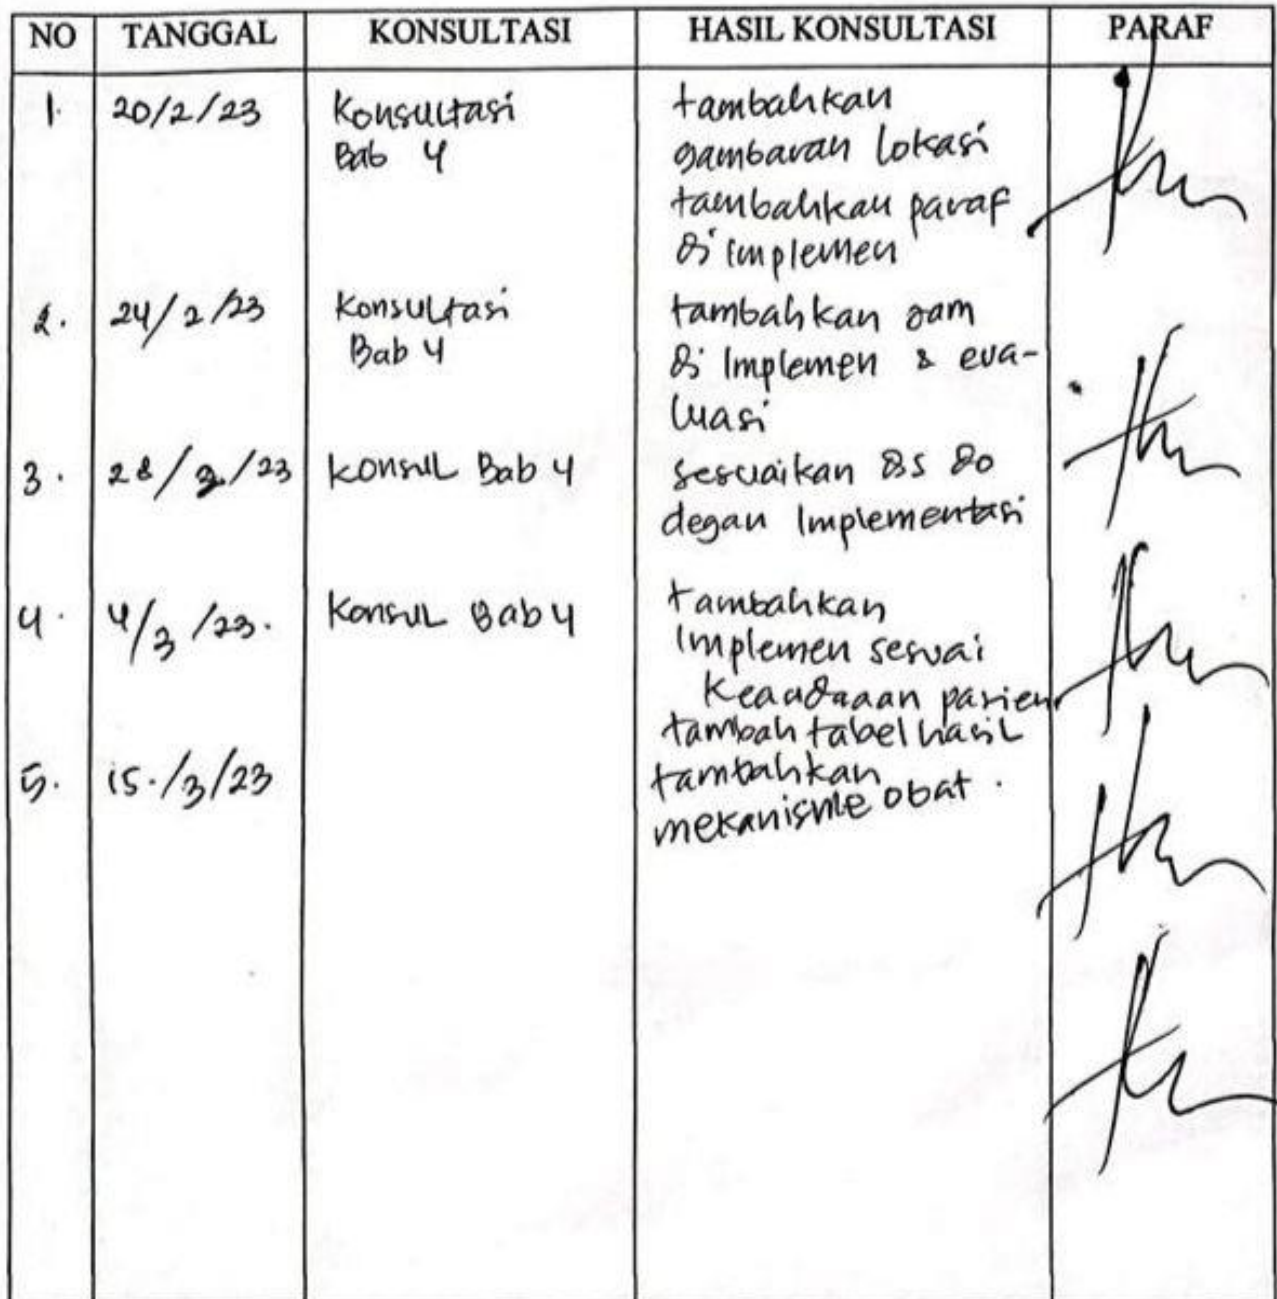 NO TANGGAL KONSULTASI HASIL KONSULTASI PARAF
1. 20/2/23 Konsultasi tambahkan
Bab 4 gambaran lokasi
tambahkan paraf
di implemen
2. 24/2/23 Konsultasi tambahkan jam
Bab 4 di Implemen & eva-
luasi
3. 28/2/23 konsul Bab 4 sesuaikan DS DO
degan Implementasi
4. 4/3/23. Konsul Bab 4 tambahkan
Implemen sesuai
Keaadaaan pasien
tambah tabel hasil
5. 15./3/23 tambahkan
mekanisme obat.